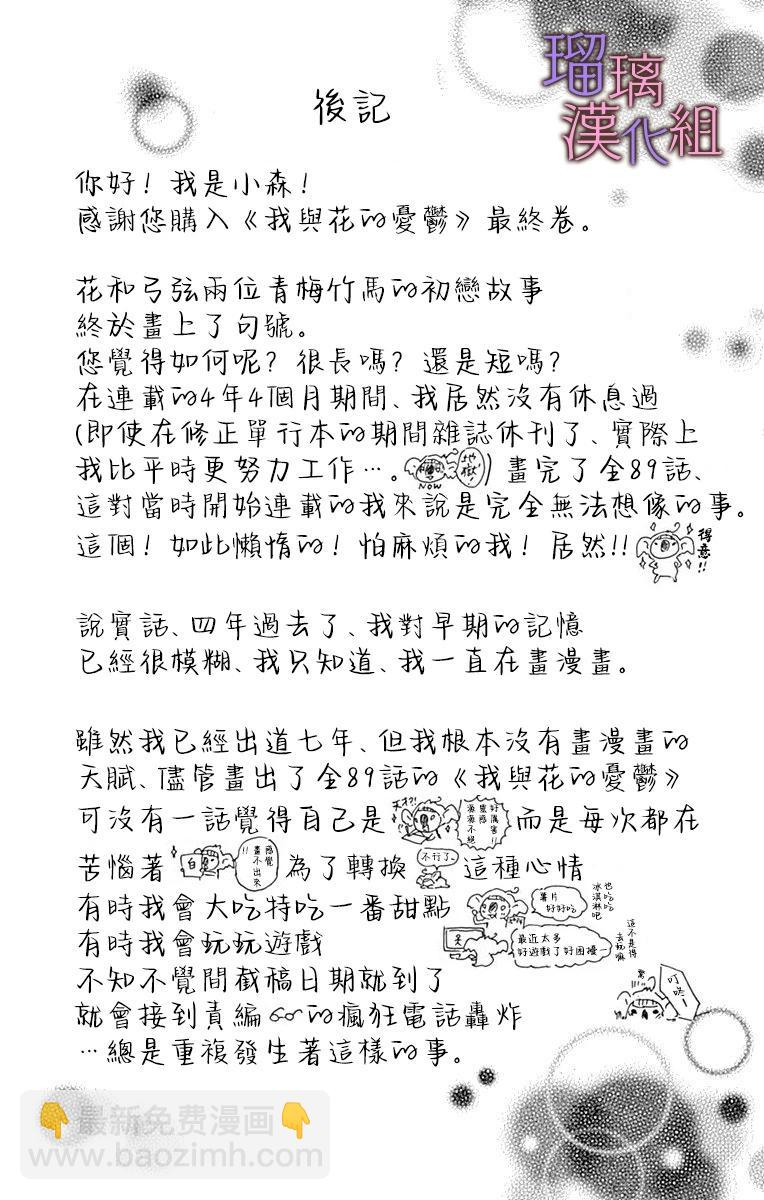 瑠璃
漢化組
後記
你好！我是小森！
感謝您購入《我與花的憂鬱》最終卷。
花和弓弦兩位青梅竹馬的初戀故事
終於畫上了句號。
您覺得如何呢？很長嗎？還是短嗎？
在連載的4年4個月期間、我居然沒有休息過
(即使在修正單行本的期間雜誌休刊了、實際上
我比平時更努力工作…。NOW 地獄!) 畫完了全89話、
這對當時開始連載的我來說是完全無法想像的事。
這個！如此懶惰的！怕麻煩的我！居然!! 得意!!
說實話、四年過去了、我對早期的記憶
已經很模糊、我只知道、我一直在畫漫畫。
雖然我已經出道七年、但我根本沒有畫漫畫的
天賦、儘管畫出了全89話的《我與花的憂鬱》
可沒有一話覺得自己是 天才?! 好厲害!! 靈感源源不絕 而是每次都在
苦惱著 白 感覺畫不出來!! 為了轉換 不行了。 這種心情
有時我會大吃特吃一番甜點 薯片好好吃 也吃吃冰淇淋吧
有時我會玩玩遊戲 最近太多好遊戲了好困擾 這不是得去玩嘛
不知不覺間截稿日期就到了 叮咚！
就會接到責編的瘋狂電話轟炸
…總是重複發生著這樣的事。
最新免费漫画
www.baozimh.com